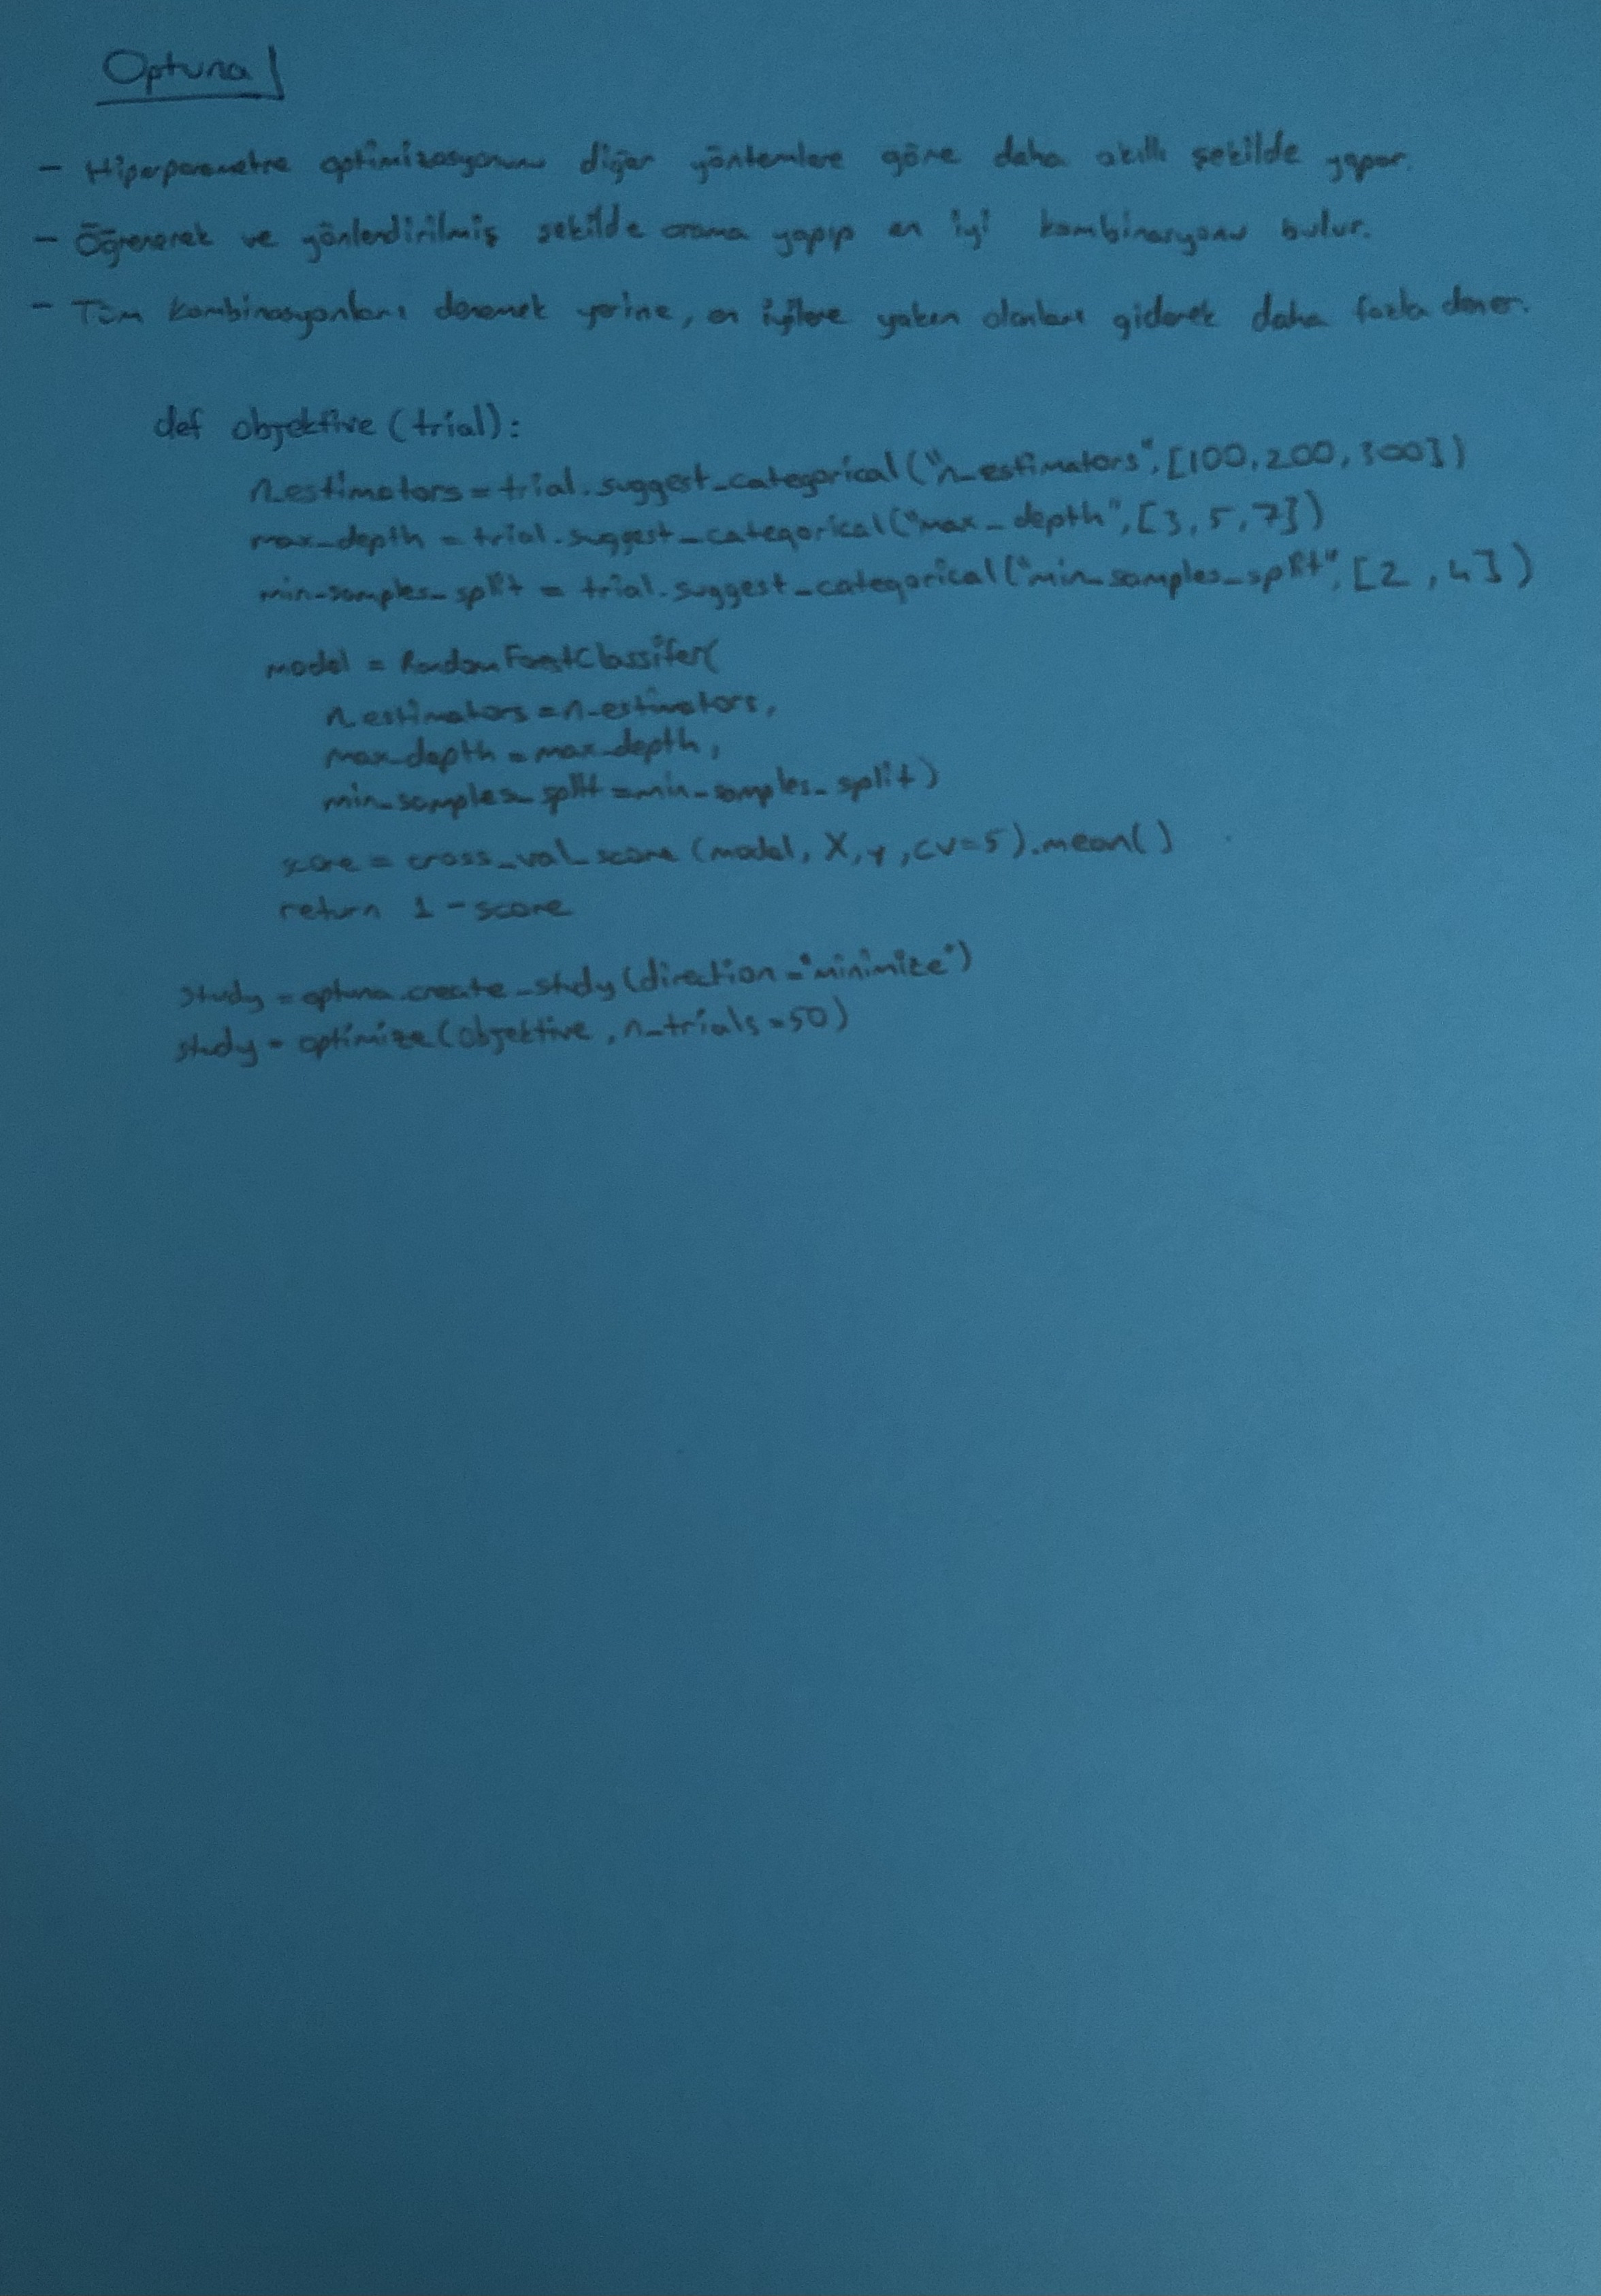 Optuna
- Hiperparametre optimizasyonunu diğer yöntemlere göre daha akıllı şekilde yapar.
- Öğrenerek ve yönlendirilmiş şekilde arama yapıp en iyi kombinasyonu bulur.
- Tüm kombinasyonları denemek yerine, en iyilere yakın olanları giderek daha fazla dener.
def objektive (trial):
n_estimators = trial.suggest_categorical("n_estimators", [100, 200, 300])
max_depth = trial.suggest_categorical("max_depth", [3, 5, 7])
min_samples_split = trial.suggest_categorical("min_samples_split", [2, 4])
model = RandomForestClassifer(
n_estimators = n_estimators,
max_depth = max_depth,
min_samples_split = min_samples_split)
score = cross_val_score (model, X, y, cv=5).mean()
return 1 - score
study = optuna.create_study (direction = "minimize")
study = optimize (objektive, n_trials = 50)